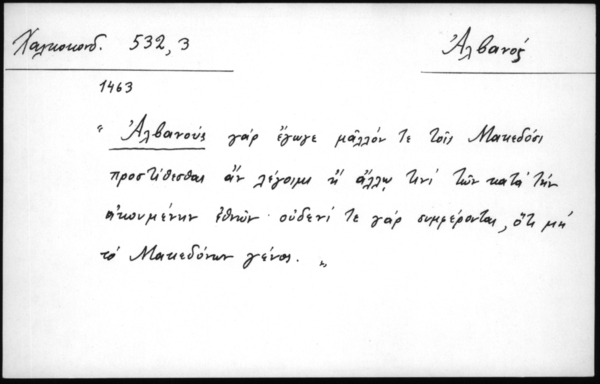 Χαλκοκονδ. 532,3
Ἀλβανός
1463
" Ἀλβανοὺς γὰρ ἔγωγε μᾶλλόν τε τοῖς Μακεδόσι
προστίθεσθαι ἂν λέγοιμι ἢ ἄλλῳ τινί τῶν κατὰ τὴν
οἰκουμένην ἐθνῶν· οὐδενί τε γὰρ συμφέρονται, ὅτι μὴ
τό Μακεδόνων γένος. "